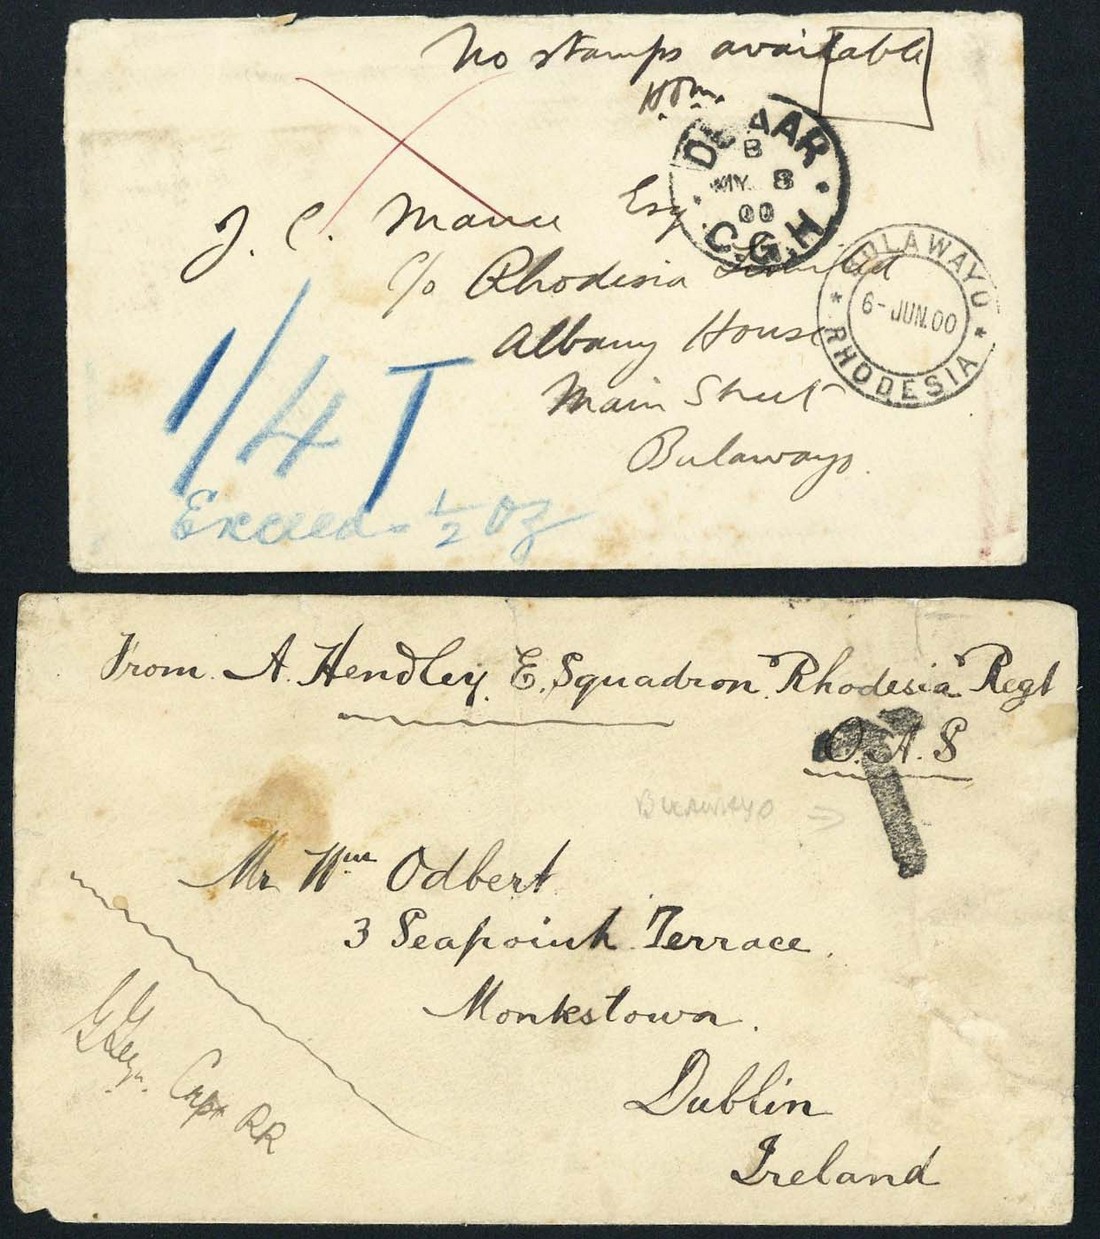 No stamps available
J. C. Esq
c/o Rhodesia Limited
Albany House
Main Street
Bulawayo.
DE AAR
B
MY 8
00
C.G.H
BULAWAYO
6-JUN.00
RHODESIA
1/4 T
Exceed- ½ oz
From A. Hendley. E. Squadron Rhodesia Regt
O.A.S
T
Bulawayo ⇒
Mr Wm Odbert
3 Seapoint Terrace.
Monkstown.
Dublin
Ireland
Capt RR